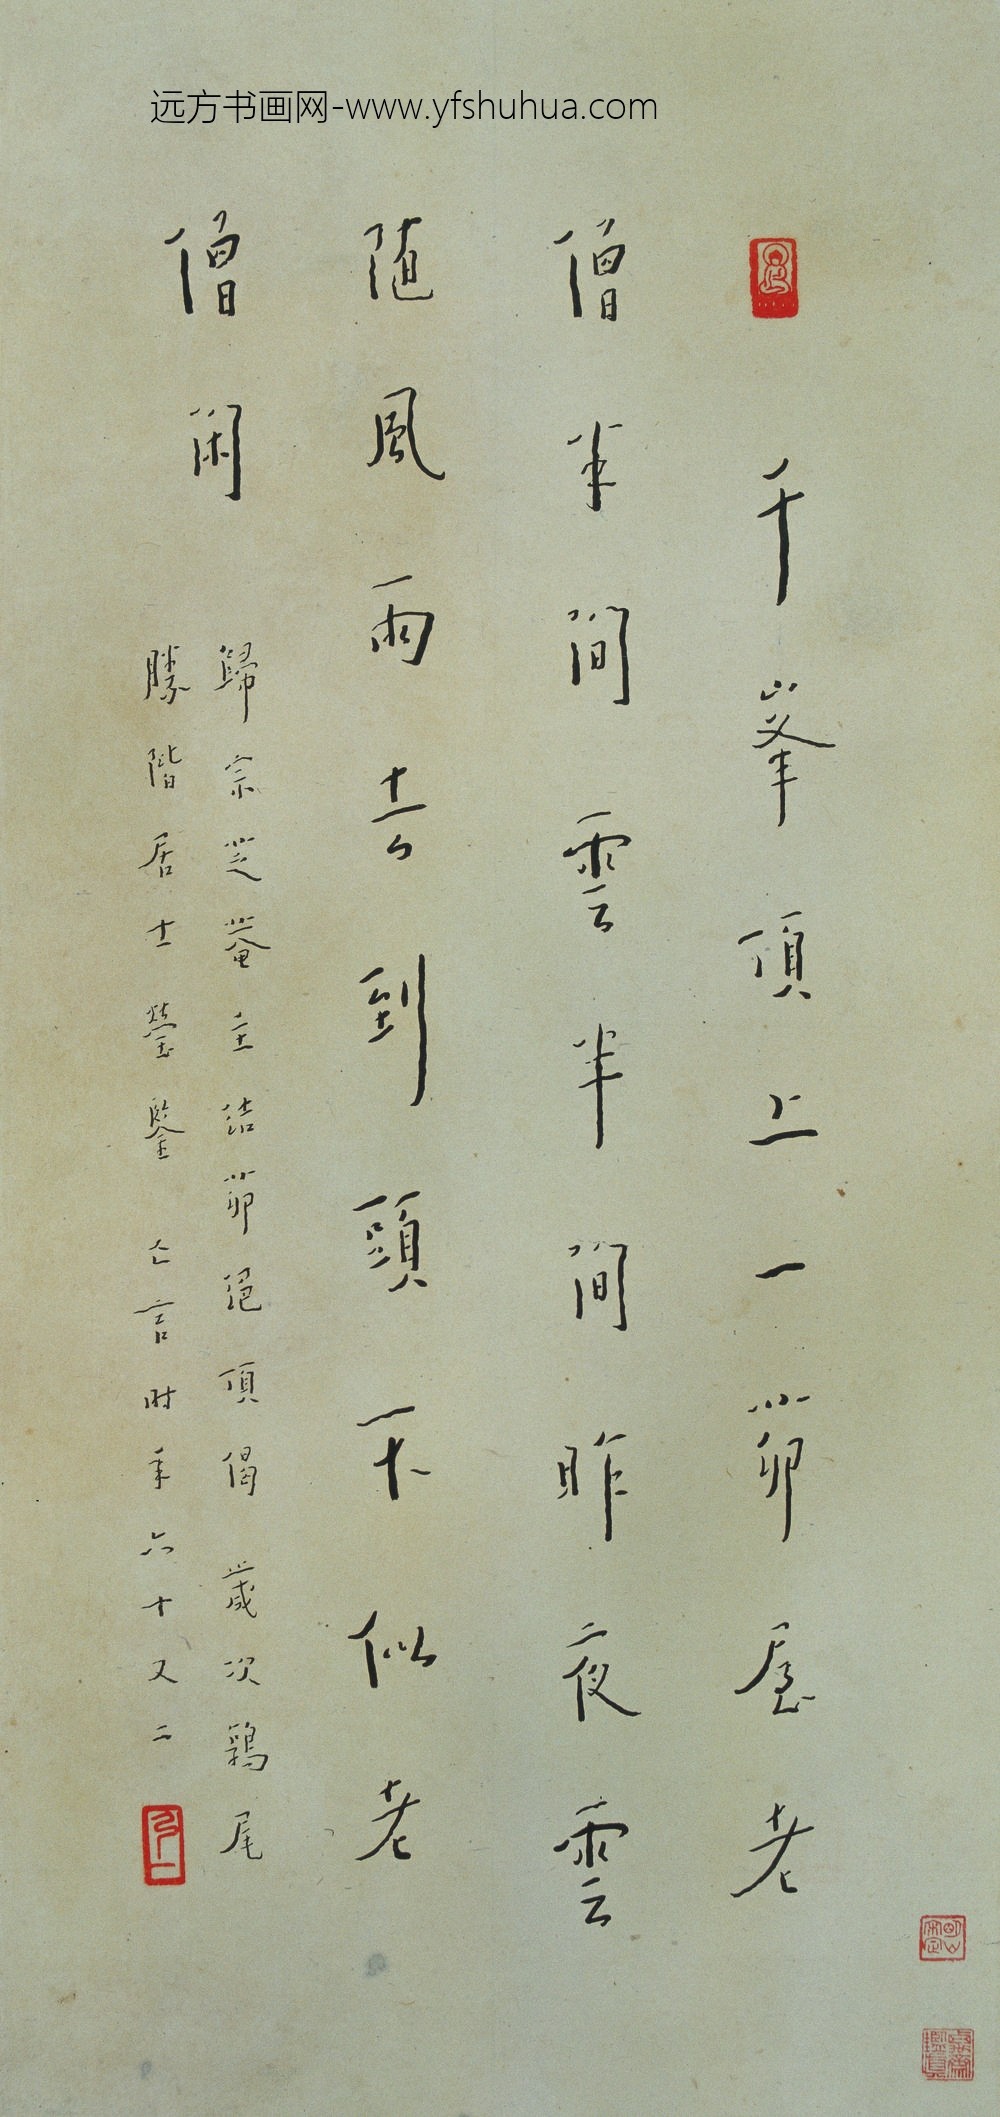 远方书画网-www.yfshuhua.com
千峯頂上一茆屋老
僧半間雲半間昨夜雲
随風雨去到頭不似老
僧閑
歸宗芝菴主結茆絕頂偈 歲次鶉尾
勝階居士瑩鑒 亡言時年六十又二